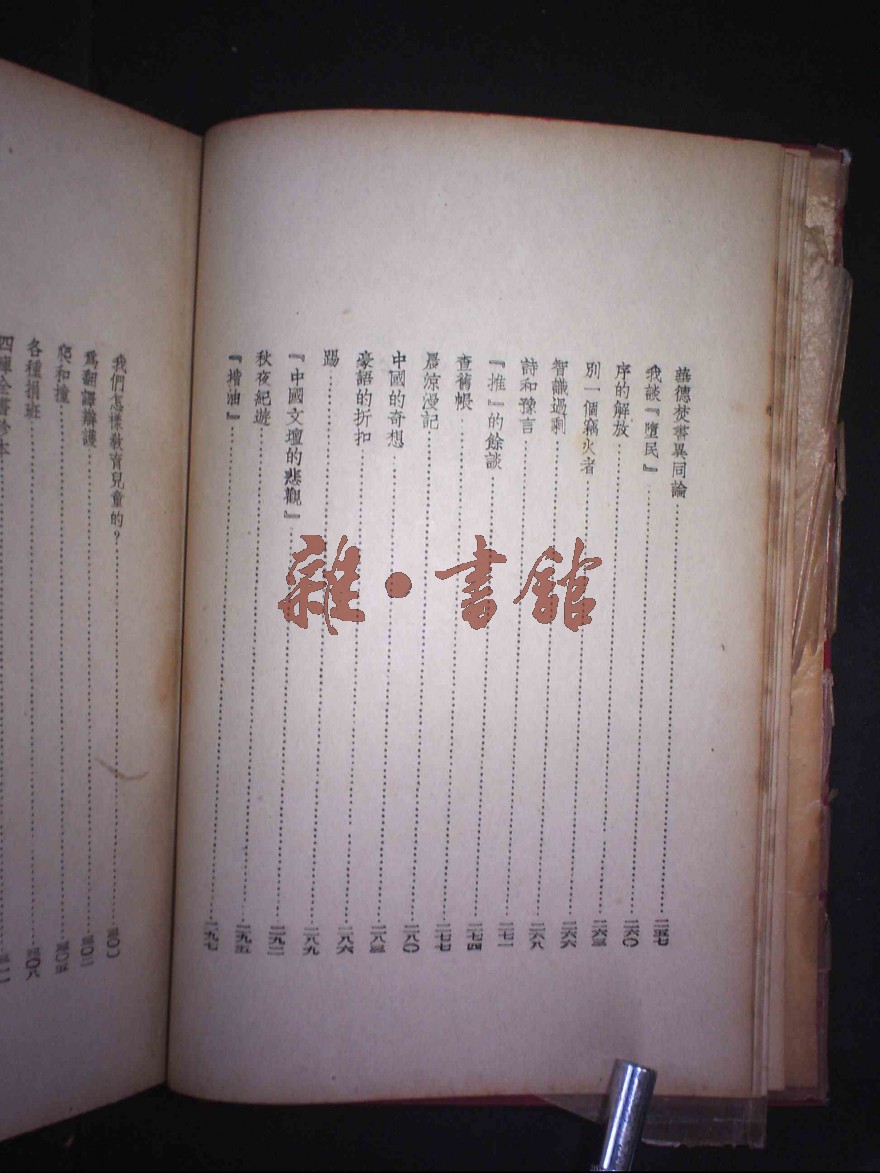 華德焚書異同論…………二五七
我談『墮民』…………二六〇
序的解放…………二六三
別一個竊火者…………二六六
智識過剩…………二六八
詩和豫言…………二七一
『推』的餘談…………二七四
查舊帳…………二七七
晨涼漫記…………二八〇
中國的奇想…………二八三
豪語的折扣…………二八六
踢…………二八九
『中國文壇的悲觀』…………二九二
秋夜紀遊…………二九五
『揩油』…………二九七
我們怎樣教育兒童的?…………三〇〇
爲翻譯辯護…………三〇二
爬和撞…………三〇五
各種捐班…………三〇八
四庫全書珍本…………三一一
雜·書館